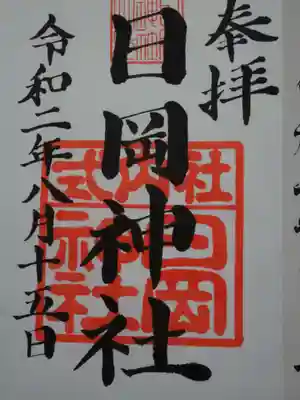 奉拝
日岡神社
令和二年八月十五日
式内社
日岡
神社